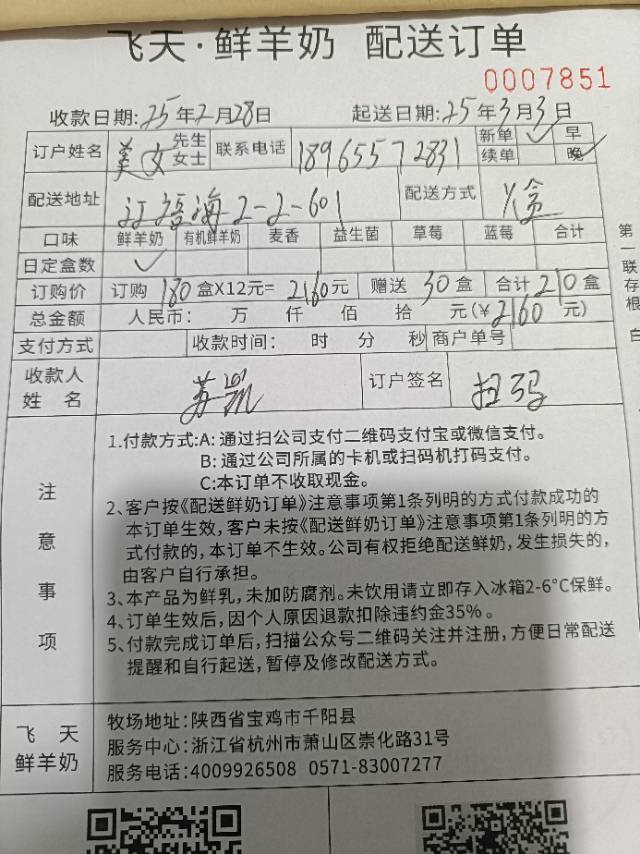 飞天·鲜羊奶 配送订单
0007851
收款日期:25年2月28日 起送日期:25年3月3日
订户姓名 美女 先生 女士 联系电话 18965572831 新单 ✓ 早
续单 晚 ✓
配送地址 江语海2-2-601 配送方式 盒
口味 鲜羊奶 有机鲜羊奶 麦香 益生菌 草莓 蓝莓 合计
日定盒数 ✓
订购价 订购 180 盒X12元= 2160元 赠送 30盒 合计 210盒
总金额 人民币: 万 仟 佰 拾 元(¥2160 元)
支付方式 收款时间: 时 分 秒 商户单号
收款人 姓名 苏凯 订户签名 扫码
注意事项
1.付款方式:A:通过扫公司支付二维码支付宝或微信支付。
B:通过公司所属的卡机或扫码机打码支付。
C:本订单不收取现金。
2、客户按《配送鲜奶订单》注意事项第1条列明的方式付款成功的
本订单生效,客户未按《配送鲜奶订单》注意事项第1条列明的方
式付款的,本订单不生效。公司有权拒绝配送鲜奶,发生损失的,
由客户自行承担。
3、本产品为鲜乳,未加防腐剂。未饮用请立即存入冰箱2-6°C保鲜。
4、订单生效后,因个人原因退款扣除违约金35%。
5、付款完成订单后,扫描公众号二维码关注并注册,方便日常配送
提醒和自行起送,暂停及修改配送方式。
飞天
鲜羊奶
牧场地址:陕西省宝鸡市千阳县
服务中心:浙江省杭州市萧山区崇化路31号
服务电话:4009926508 0571-83007277
第一联存根 白